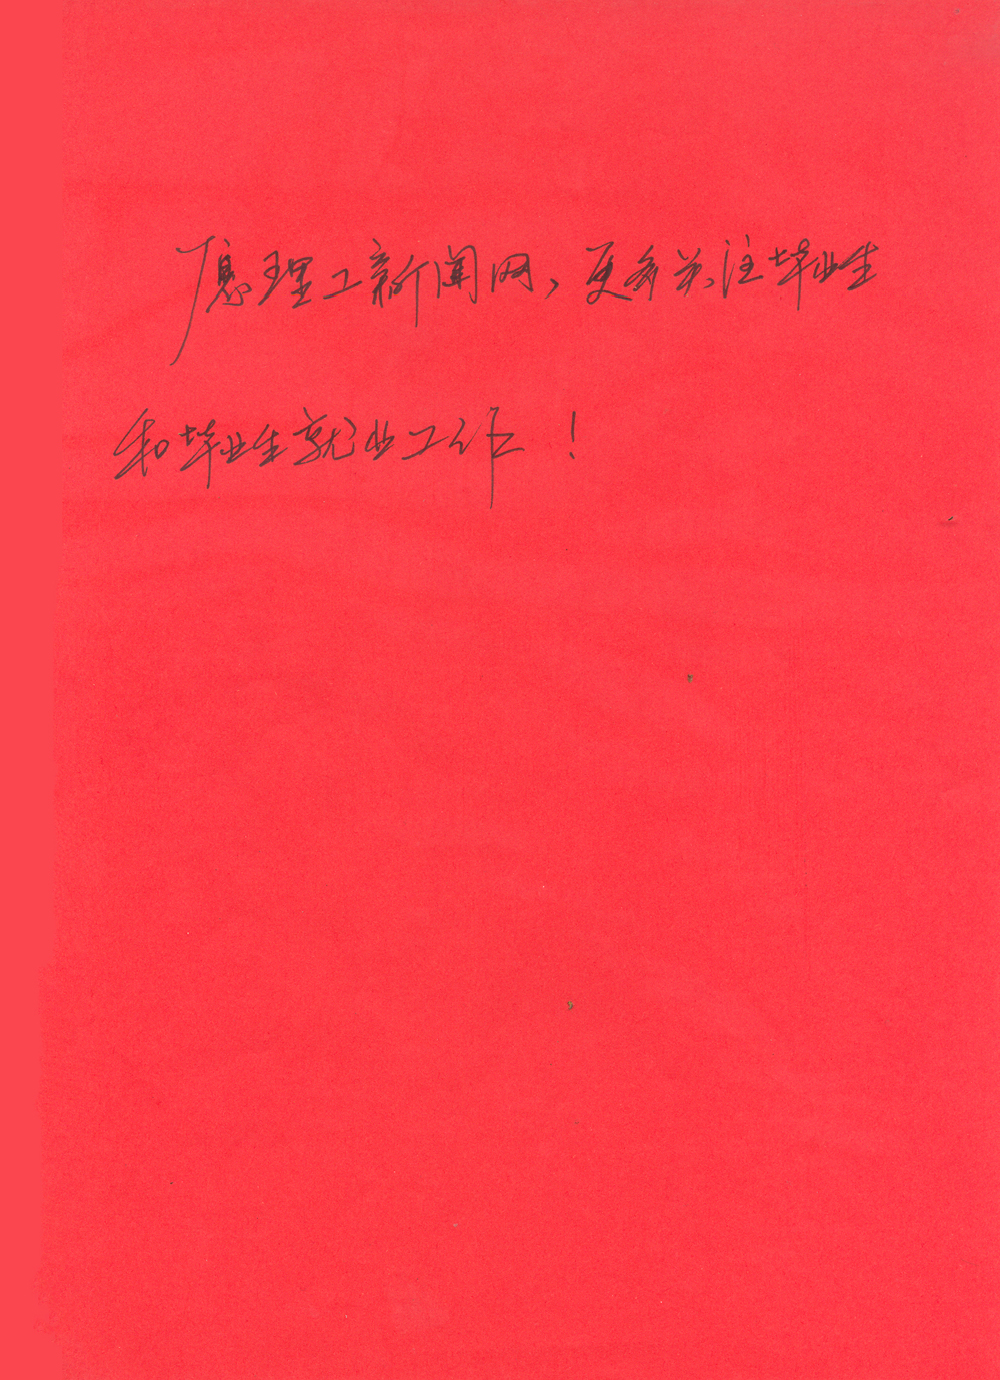 愿理工新闻网，更多关注毕业生
和毕业生就业工作！